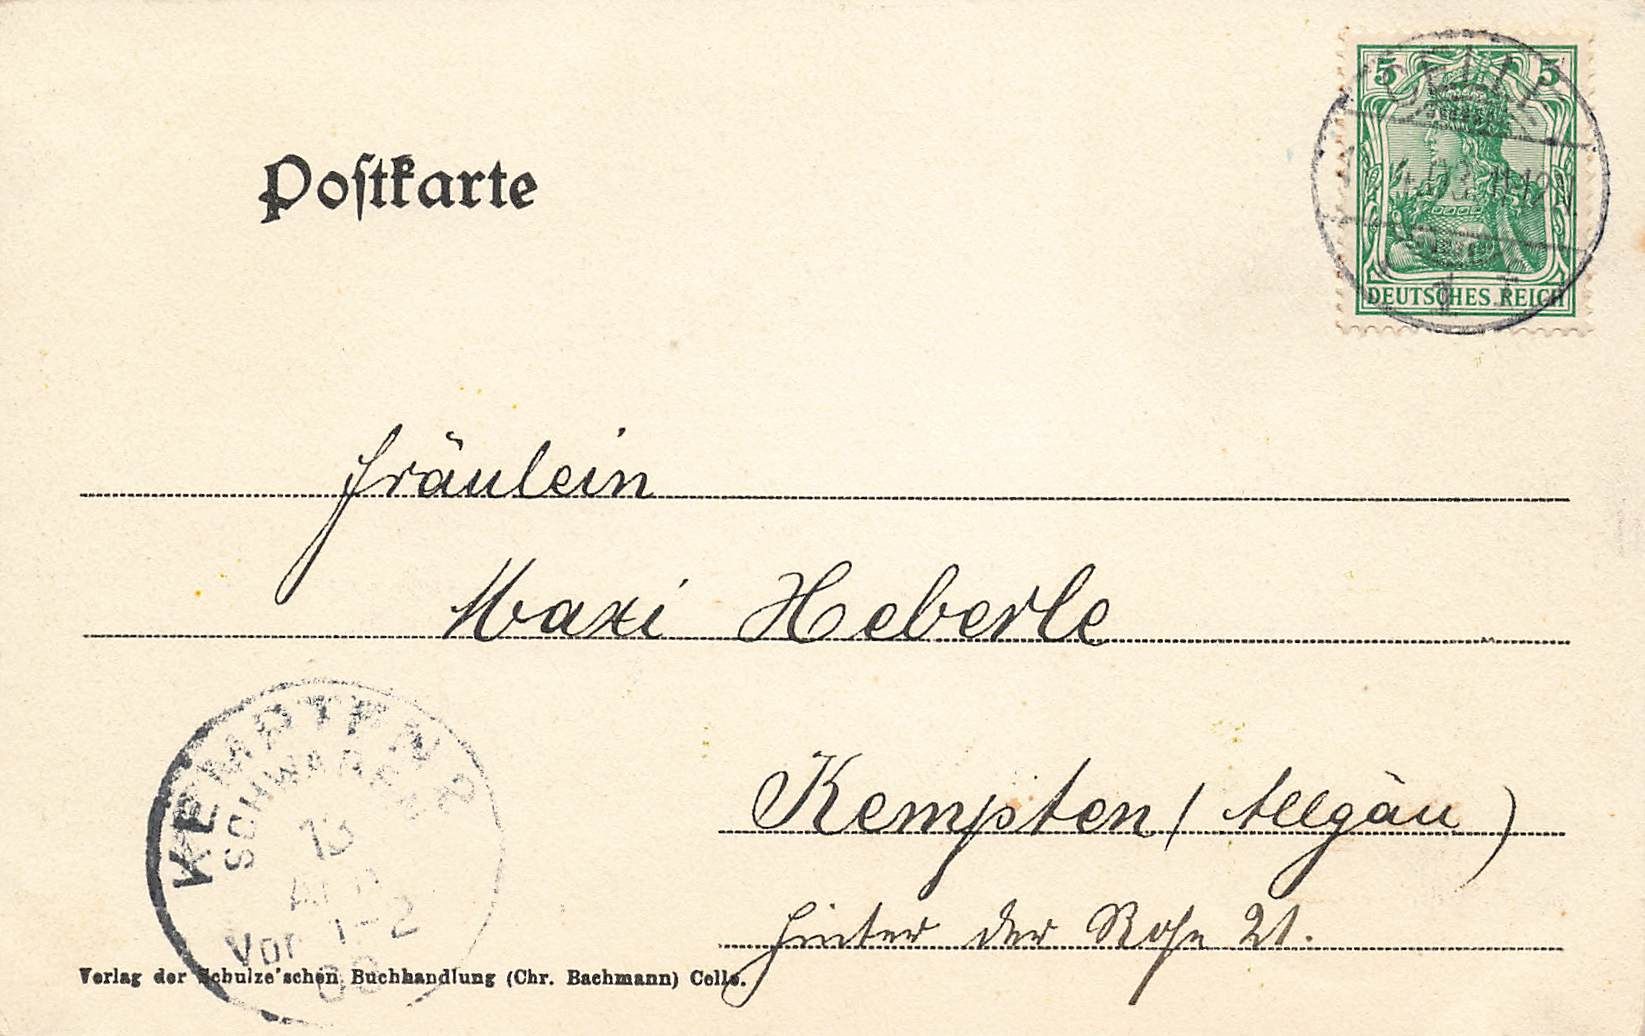 5 5
CELLE
11-12
DEUTSCHES REICH
Postkarte
Fräulein
Maxi Heberle
KEMPTEN
SCHWABEN
13
Vor 1-2
Kempten (Allgäu)
hinter der 21.
Verlag der Schulze'schen Buchhandlung (Chr. Bachmann) Celle.